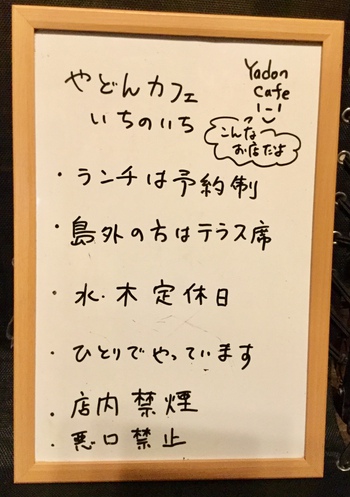 やどんカフェ
いちのいち
Yadon
Cafe
こんな
お店だよ
・ランチは予約制
・島外の方はテラス席
・水・木定休日
・ひとりでやっています
・店内禁煙
・悪口禁止